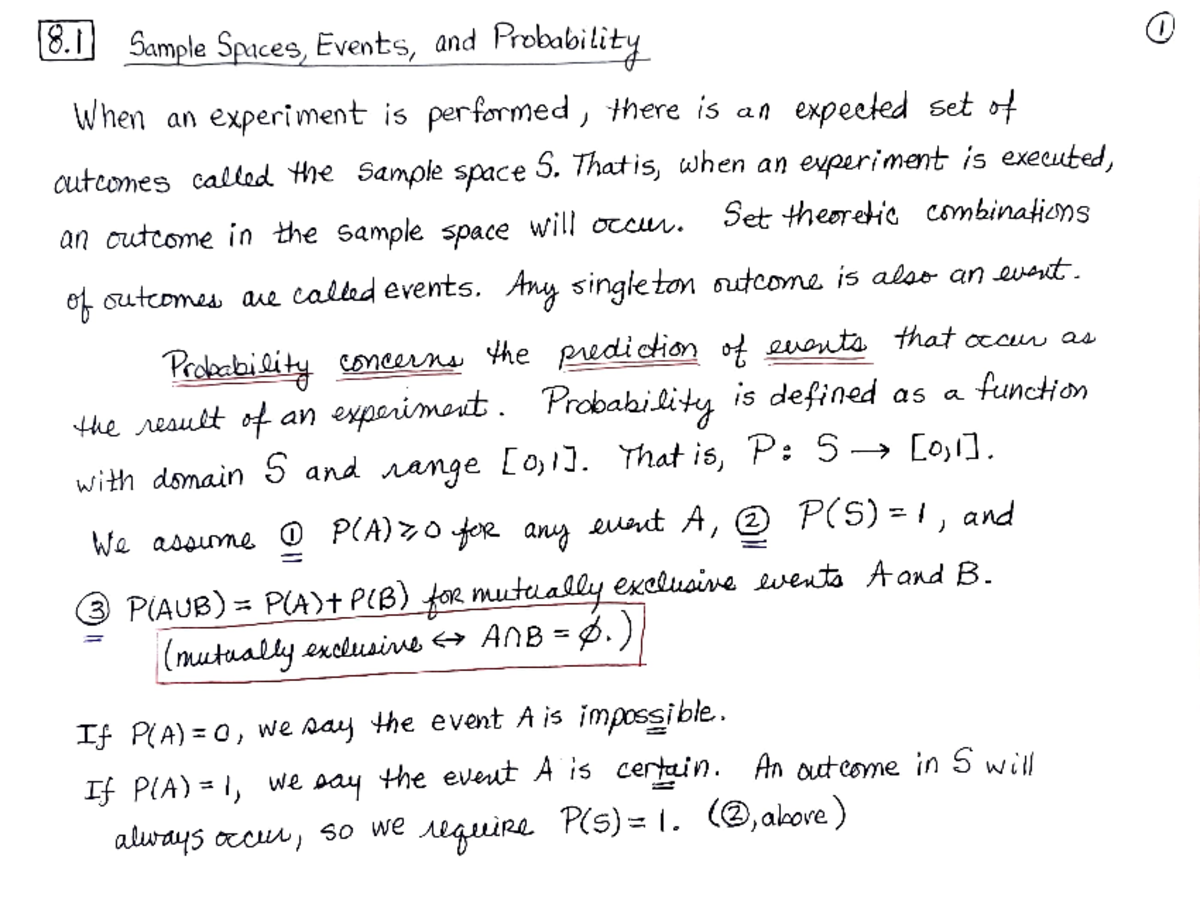 8.1 Sample Spaces, Events, and Probability ①
When an experiment is performed, there is an expected set of
outcomes called the sample space S. That is, when an experiment is executed,
an outcome in the sample space will occur. Set theoretic combinations
of outcomes are called events. Any singleton outcome is also an event.
Probability concerns the prediction of events that occur as
the result of an experiment. Probability is defined as a function
with domain S and range [0,1]. That is, P: S → [0,1].
We assume ① P(A) ≥ 0 for any event A, ② P(S) = 1, and
③ P(A∪B) = P(A) + P(B) for mutually exclusive events A and B.
(mutually exclusive ↔ A∩B = ∅.)
If P(A) = 0, we say the event A is impossible.
If P(A) = 1, we say the event A is certain. An outcome in S will
always occur, so we require P(S) = 1. (②, above)